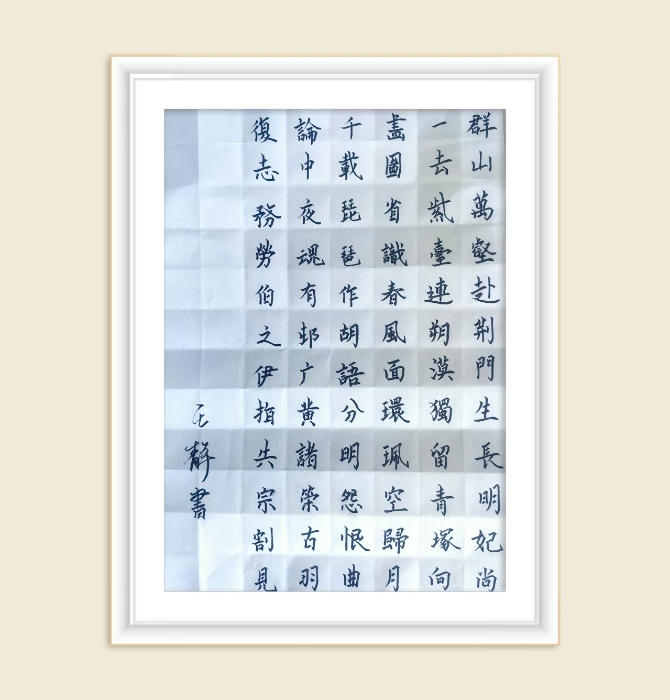 群山萬壑赴荆門生長明妃尚
一去紫臺連朔漠獨留青塚向
畫圖省識春風面環珮空歸月
千載琵琶作胡語分明怨恨曲
論中夜魂有邨广黃諸榮古羽
復志務勞伯之伊指共宗割見
王靜書